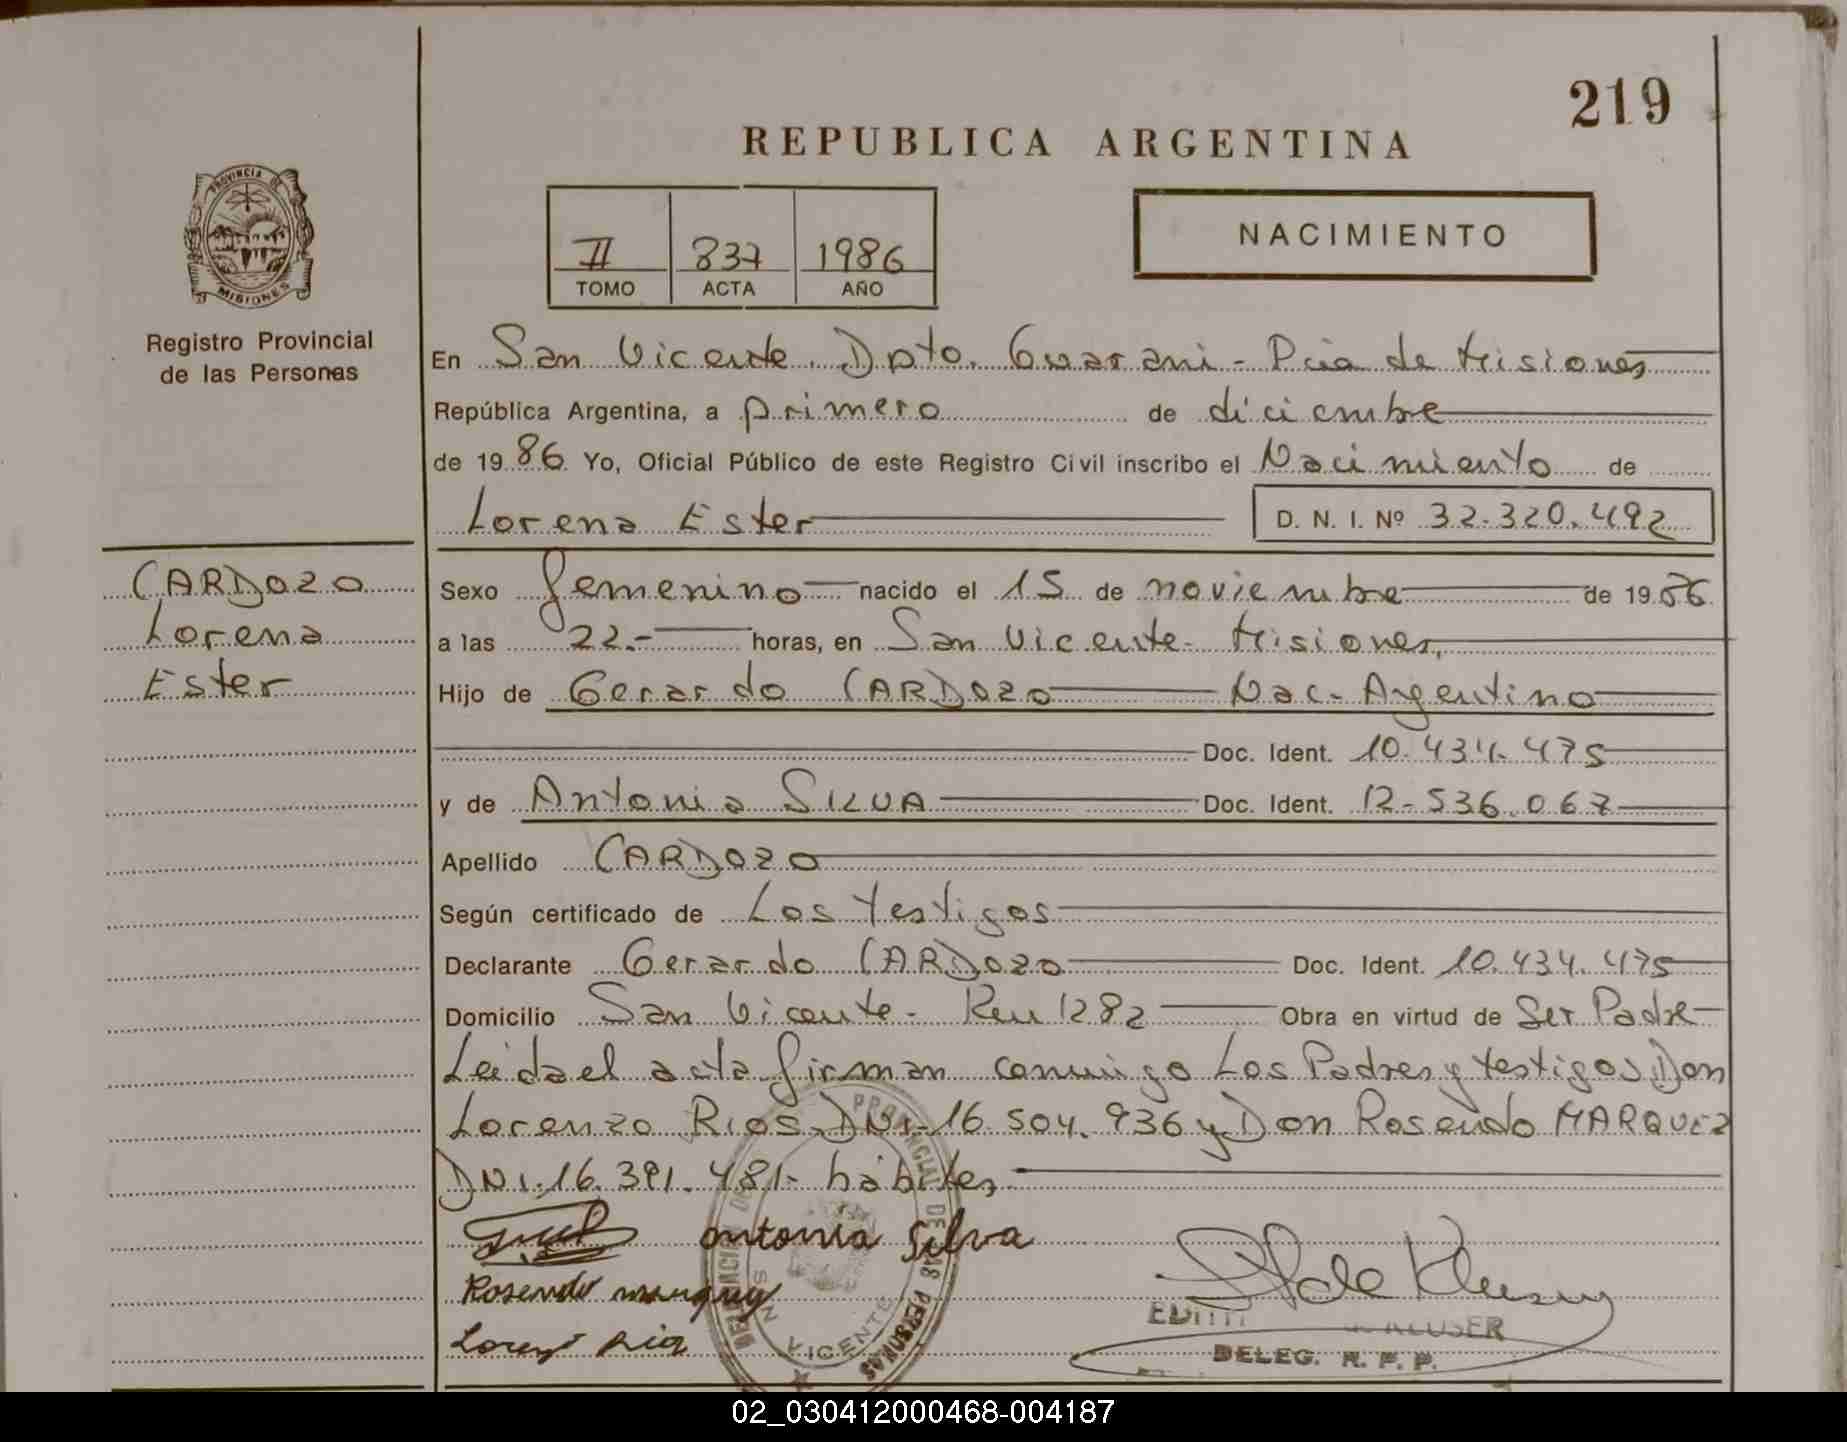 219
REPUBLICA ARGENTINA
PROVINCIA DE
MISIONES
Registro Provincial
de las Personas
II 837 1986
TOMO ACTA AÑO
NACIMIENTO
En San Vicente. Dpto. Guarani - Pcia de Misiones
República Argentina, a primero de diciembre
de 1986. Yo, Oficial Público de este Registro Civil inscribo el Nacimiento de
Lorena Ester D. N. I. Nº 32.320.492
CARDOZO
Lorena
Ester
Sexo femenino nacido el 15 de noviembre de 1986
a las 22.- horas, en San Vicente - Misiones,
Hijo de Gerardo CARDOZO Nac- Argentino
Doc. Ident. 10.434.475
y de Antonia SILVA Doc. Ident. 12-536.067
Apellido CARDOZO
Según certificado de Los testigos
Declarante Gerardo CARDOZO Doc. Ident. 10.434.475
Domicilio San Vicente - Km 1282 Obra en virtud de Ser Padre
Leida el acta firman conmigo Los Padres y testigos Don
Lorenzo Rios DNI-16.504.936 y Don Rosendo MARQUEZ
DNI.16.391.481- hábiles
antonia silva
Rosendo
PROVINCIAL DE LAS PERSONAS
VICENTE
KLUSER
DELEG. R. P. P.
02_030412000468-004187